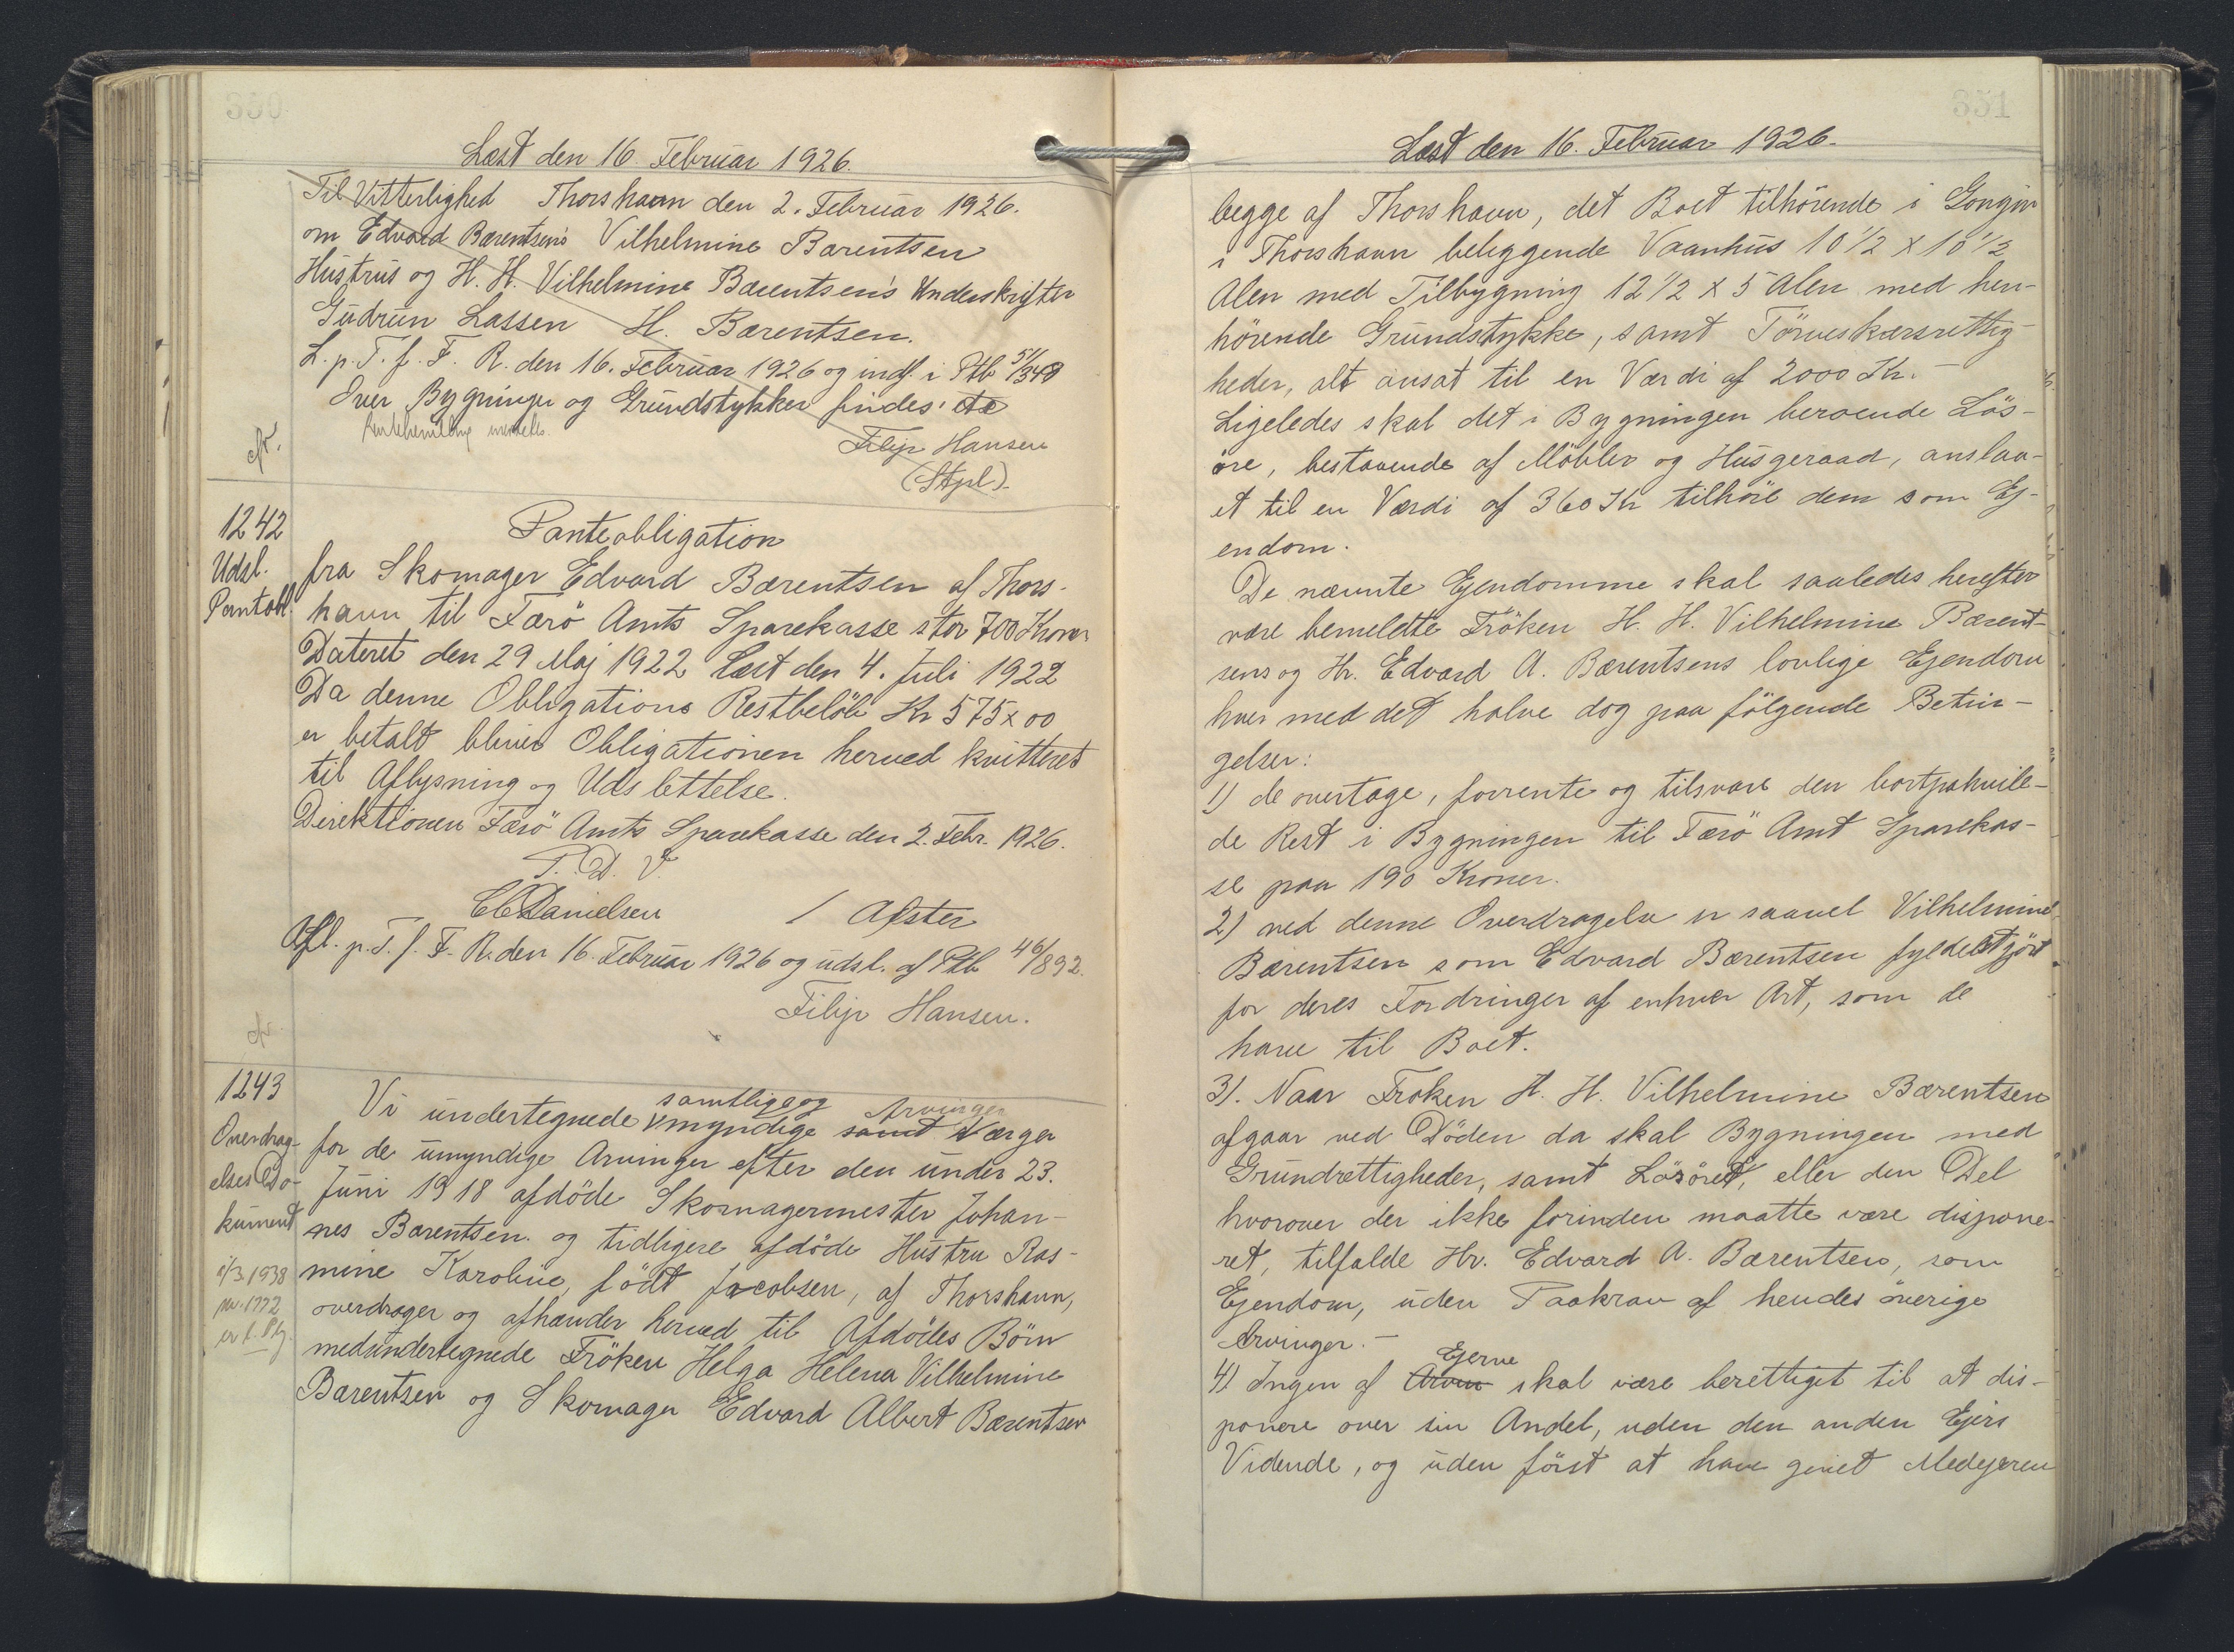 350
Læst den 16. Februar 1926.
Til Vitterlighed Thorshavn den 2. Februar 1926.
om Edvard Bærentsen's Vilhelmine Bærentsen
Hustrus og H. H. Vilhelmine Bærentsen's Underskrifter
Gudrun Lassen H. Bærentsen.
L. p. T. f. F. R. den 16. Februar 1926 og indf. i Ptb 51/349
Over Bygninger og Grundstykker findes
Filip Hansen
cfr.
(Stpl).
1242
Udsl.
Pantobl.
Panteobligation
fra Skomager Edvard Bærentsen af Thors-
havn til Færö Amts Sparekasse stor 700 Kroner
Dateret den 29 Maj 1922 Læst den 4. Juli 1922
Da denne Obligations Restbelöb Kr 575 x 00
er betalt bliver Obligationen herved kvitteret
til Aflysning og Udslettelse.
Direktionen Færö Amts Sparekasse den 2. Febr. 1926.
P. D. V.
C C Danielsen / Apster
Afl. p. T. f. F. R. den 16. Februar 1926 og udsl. af Ptb 46/892.
Filip Hansen.
cfr.
1243
Overdrag-
elses Do-
kument
1/3.1938
er t. Ptg.
Vi undertegnede samtlige og Arvinger
myndige samt Værger
for de umyndige Arvinger efter den under 23.
Juni 1918 afdöde Skomagermester Johan-
nes Bærentsen og tidligere afdöde Hustru Ras-
mine Karoline, födt Jacobsen, af Thorshavn,
overdrager og afhænder herved til Afdödes Börn
medundertegnede Fröken Helga Helena Vilhelmine
Bærentsen og Skomager Edvard Albert Bærentsen
351
Læst den 16. Februar 1926.
begge af Thorshavn, det Boet tilhörende i Gongin
i Thorshavn beliggende Vaanhus 10 1/2 x 10 1/2
Alen med Tilbygning 12 1/2 x 5 Alen med hen-
hörende Grundstykke, samt Törveskærsrettig-
heder, alt ansat til en Værdi af 2000 Kr. -
Ligeledes skal det i Bygningen beroende Lös-
öre, bestaaende af Möbler og Husgeraad, anslaa-
et til en Værdi af 360 Kr tilhöre dem som Ej-
endom.
De nævnte Ejendomme skal saaledes herefter
være bemeldte Fröken H. H. Vilhelmine Bærent-
sens og Hr. Edvard A. Bærentsens lovlige Ejendom
hver med det halve dog paa fölgende Betin-
gelser:
1) de overtage, forrente og tilsvare den bortpahvile-
de Rest i Bygningen til Færö Amt Sparekas-
se paa 190 Kroner.
2) ved denne Overdragelse er saavel Vilhelmine
Bærentsen som Edvard Bærentsen fyldestgjört
for deres Fordringer af enhver Art, som de
have til Boet.
3). Naar Froken H. H. Vilhelmine Bærentsen
afgaar ved Döden da skal Bygningen med
Grundrettigheder, samt Lösöret, eller den Del
hvorover der ikke forinden maatte være dispone-
ret, tilfalde Hr. Edvard A. Bærentsen, som
Ejendom, uden Paakrav af hendes överige
Arvinger. -
Ejerne
4) Ingen af Arven skal være berettiget til at dis-
ponere over sin Andel, uden den anden Ejers
Vidende, og uden först at have givet Medejeren